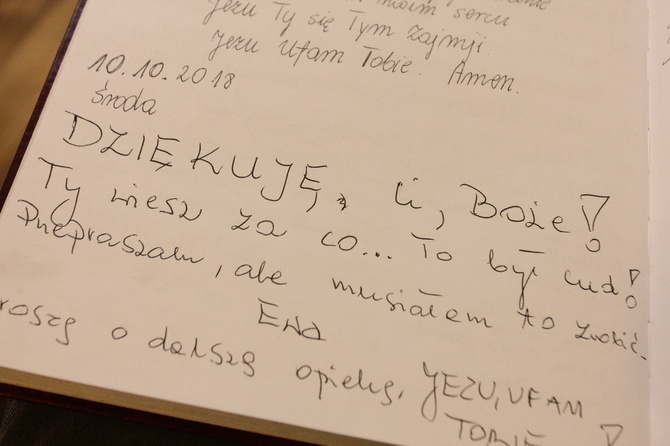 moim sercu
Jezu Ty się Tym zajmij.
Jezu Ufam Tobie. Amen.
10.10.2018
środa
DZIĘKUJĘ Ci, Boże!
Ty wiesz za co... To był cud!
Przepraszam, ale musiałem to zrobić.
Ewa
roszę o dalszą opiekę, JEZU, UFAM
TOBIE!